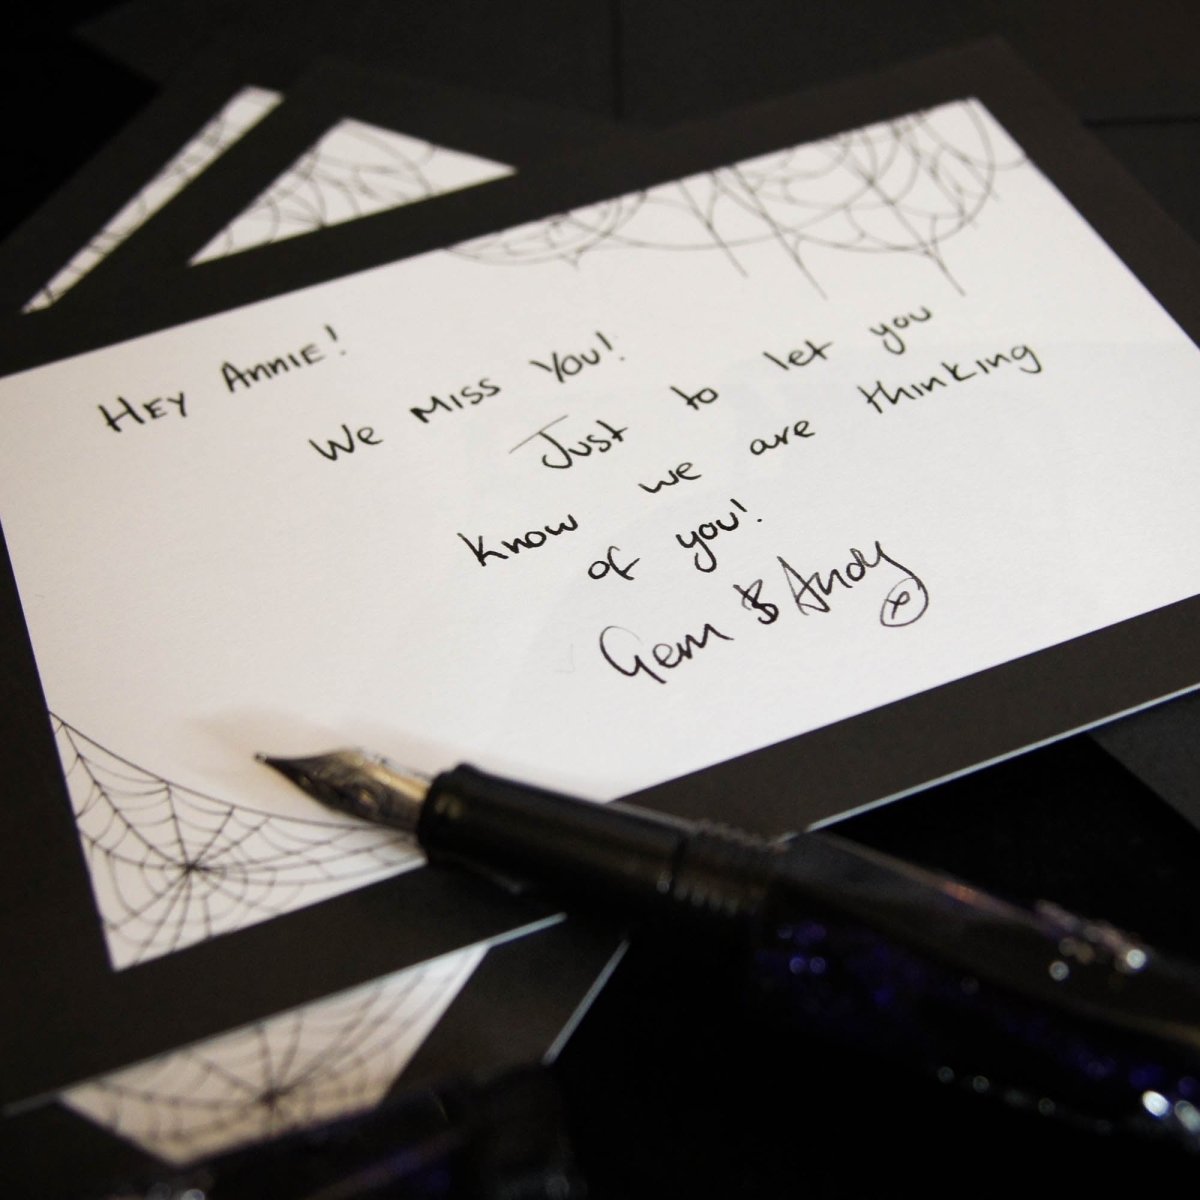 HEY ANNIE!
We MISS You!
Just to let you
know we are thinking
of you!
Gem & Andy
x